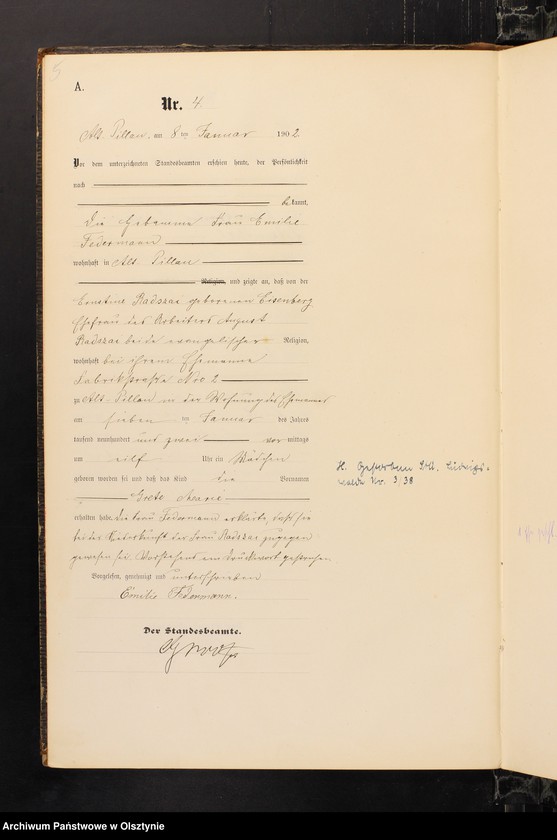 A.
Nr. 4.
Alt-Pillau, am 8ten Januar 1902
Vor dem unterzeichneten Standesbeamten erschien heute, der Persönlichkeit
nach
bekannt,
die Hebamme Frau Emilie
Federmann
wohnhaft in Alt-Pillau
Religion, und zeigte an, daß von der
Ernstine Radszat geborenen Eisenberg
Ehefrau des Arbeiters August
Radszat beide evangelischer Religion,
wohnhaft bei ihrem Ehemanne
Fabrikstraße Nro 2
zu Alt-Pillau in der Wohnung des Ehemannes
am sieben ten Januar des Jahres
tausend neunhundert und zwei vor mittags
um eilf Uhr ein Mädchen
geboren worden sei und daß das Kind die Vornamen
Grete
erhalten habe. Die Frau Federmann erklärte, daß sie
bei der Niederkunft der Frau Radszat zugegen
gewesen sei. Vorstehend ein Druckwort gestrichen.
Vorgelesen, genehmigt und unterschrieben
Emilie Federmann.
Der Standesbeamte.
H. Gestorben StA. Ludwigs-
walde Nr. 3/38
Archiwum Państwowe w Olsztynie